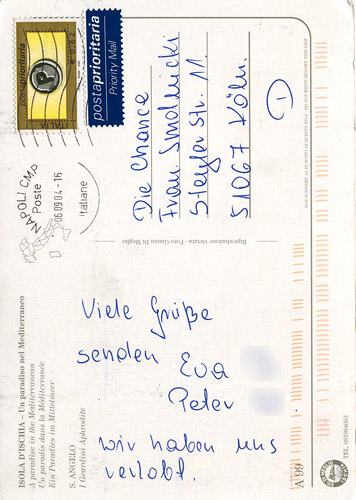 ISOLA D'ISCHIA – Un paradiso nel Mediterraneo
A paradise in the Mediterranean
Un paradis dans la Méditerranée
Ein Paradies im Mittelmeer
S. ANGELO
I Giardini Aphrodite
Viele Grüße
senden Eva
Peter
wir haben uns
verlobt.
A 99
Riproduzione vietata - Foto Gianni Di Meglio
NAPOLI CMP
Poste
06.09.04-16
Italiane
postaprioritaria
ITALIA
€ 0,62
P
postaprioritaria
Priority Mail
Die Chance
Frau Smolnicki
Steyler Str. 11
51067 Köln
DO NOT WRITE BELOW THIS LINE
TEL. 081984663